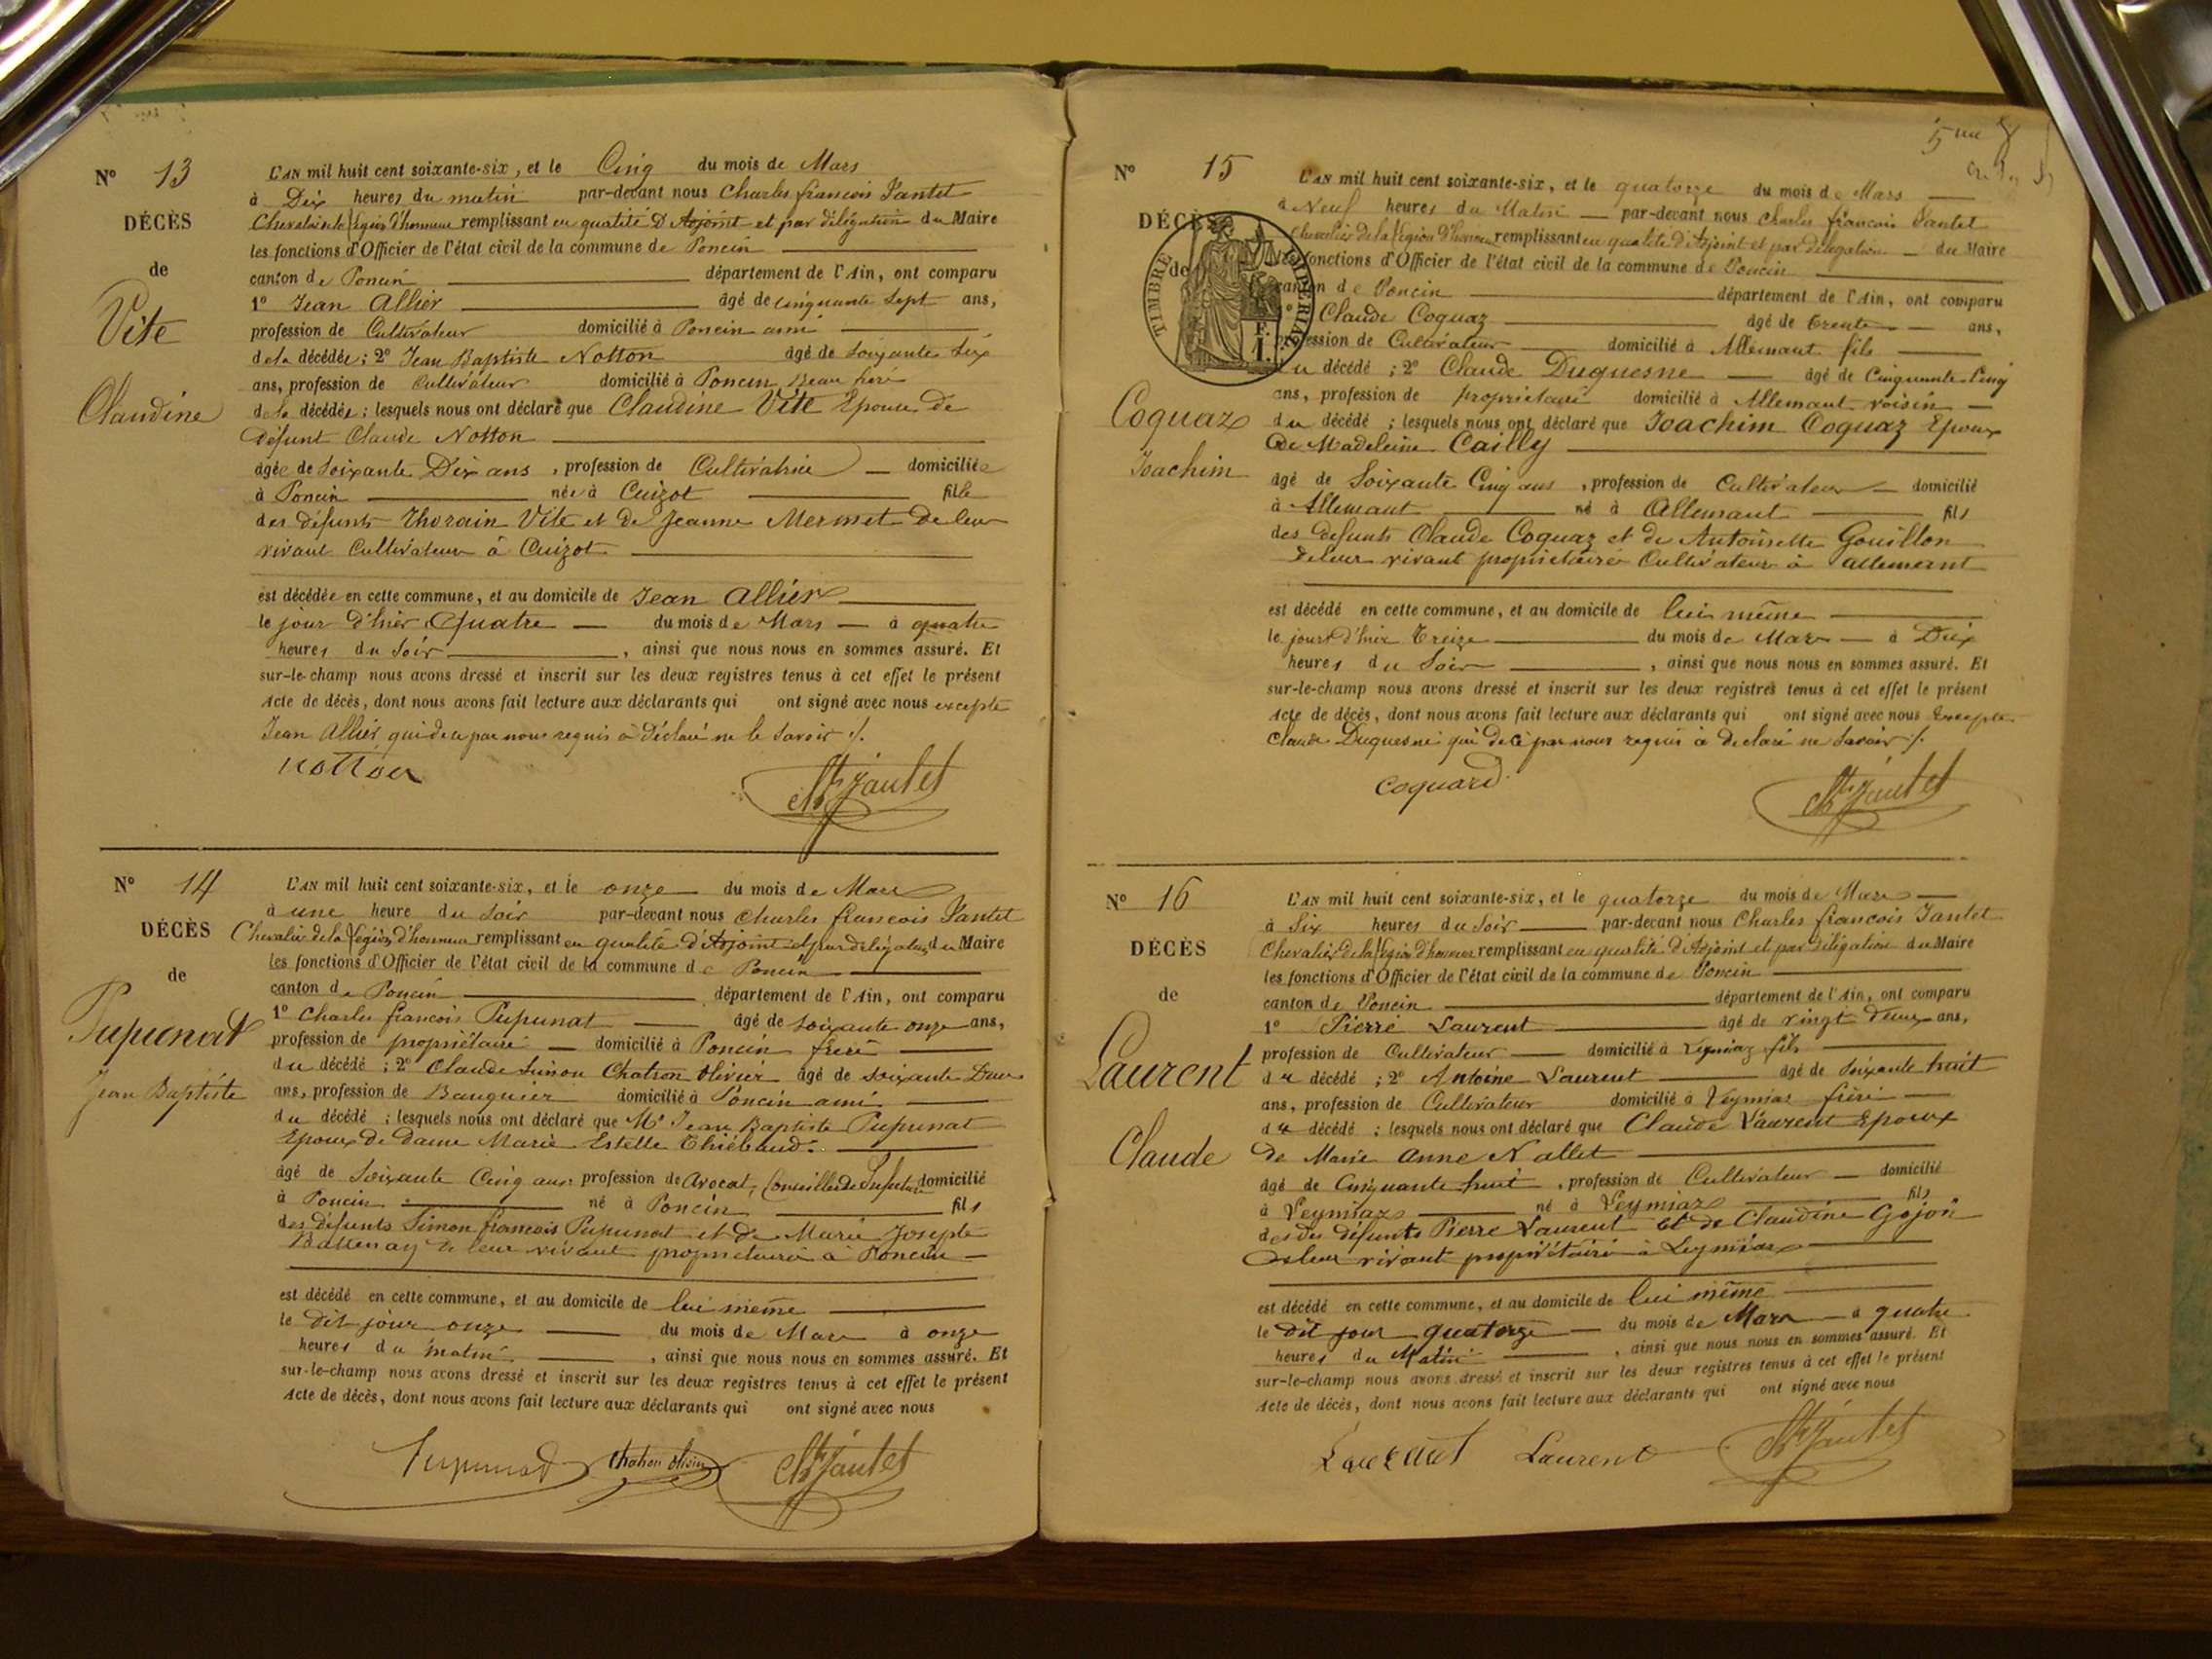 N° 13
DÉCÈS
de
Vite
Claudine
L'AN mil huit cent soixante-six, et le Cinq du mois de Mars
à Dix heures du matin par-devant nous Charles françois Jantet
Chevalier de la légion d'honneur remplissant en qualité D'Adjoint et par délégation du Maire
les fonctions d'Officier de l'état civil de la commune de Poncin
canton de Poncin département de l'Ain, ont comparu
1° Jean Allier âgé de cinquante sept ans,
profession de Cultivateur domicilié à Poncin ami
de la décédée ; 2° Jean Baptiste Notton âgé de soixante six
ans, profession de Cultivateur domicilié à Poncin Beau frère
de la décédée ; lesquels nous ont déclaré que Claudine Vite Epouse de
défunt Claude Notton
âgée de soixante Dix ans , profession de Cultivatrice domiciliée
à Poncin née à Cuizot fille
des défunts Thorain Vite et de Jeanne Mermet De leur
vivant Cultivateur à Cuizot
est décédée en cette commune, et au domicile de Jean Allier
le jour d'hier Quatre du mois de Mars à quatre
heures du Soir , ainsi que nous nous en sommes assuré. Et
sur-le-champ nous avons dressé et inscrit sur les deux registres tenus à cet effet le présent
Acte de décès, dont nous avons fait lecture aux déclarants qui ont signé avec nous excepté
Jean Allier qui de ce par nous requis a déclaré ne le savoir ./.
notton
Ch Jantet
N° 14
DÉCÈS
de
Pupunat
Jean Baptiste
L'AN mil huit cent soixante-six, et le onze du mois de Mars
à une heure du soir par-devant nous Charles françois Jantet
Chevalier de la légion d'honneur remplissant en qualité d'Adjoint et par délégation du Maire
les fonctions d'Officier de l'état civil de la commune de Poncin
canton de Poncin département de l'Ain, ont comparu
1° Charles françois Pupunat âgé de soixante onze ans,
profession de propriétaire domicilié à Poncin frère
du décédé ; 2° Claude Simon Chatron Olivier âgé de soixante Deux
ans, profession de Banquier domicilié à Poncin ami
du décédé ; lesquels nous ont déclaré que Mr Jean Baptiste Pupunat
Epoux de Dame Marie Estelle Thiébaud.
âgé de soixante Cinq ans profession de Avocat, Conseiller de Préfecture domicilié
à Poncin né à Poncin fils
des défunts Simon françois Pupunat et de Marie Josepte
de leur vivant propriétaire à Poncin
est décédé en cette commune, et au domicile de lui même
le dit jour onze du mois de Mars à onze
heures du matin , ainsi que nous nous en sommes assuré. Et
sur-le-champ nous avons dressé et inscrit sur les deux registres tenus à cet effet le présent
Acte de décès, dont nous avons fait lecture aux déclarants qui ont signé avec nous
Pupunat Chatron Olivier Ch Jantet
5me
N° 15
DÉCÈS
de
TIMBRE IMPÉRIAL
F. 1.
Coquaz
Joachim
L'AN mil huit cent soixante-six, et le quatorze du mois de Mars
à Neuf heures du Matin par-devant nous Charles françois Jantet
Chevalier de la légion d'honneur remplissant en qualité d'Adjoint et par délégation du Maire
les fonctions d'Officier de l'état civil de la commune de Poncin
canton de Poncin département de l'Ain, ont comparu
1° Claude Coquaz âgé de trente ans,
profession de Cultivateur domicilié à Allemant fils
du décédé ; 2° Claude Duquesne âgé de Cinquante Cinq
ans, profession de propriétaire domicilié à Allemant voisin
du décédé ; lesquels nous ont déclaré que Joachim Coquaz Epoux
de Madeleine Cailly
âgé de Soixante Cinq ans , profession de Cultivateur domicilié
à Allemant né à Allemant fils
des défunts Claude Coquaz et de Antoinette Gouillon
de leur vivant propriétaire Cultivateur à Allemant
est décédé en cette commune, et au domicile de lui même
le jour d'hier Treize du mois de Mars à Dix
heures du Soir , ainsi que nous nous en sommes assuré. Et
sur-le-champ nous avons dressé et inscrit sur les deux registres tenus à cet effet le présent
Acte de décès, dont nous avons fait lecture aux déclarants qui ont signé avec nous Excepté
Claude Duquesne qui de ce par nous requis a déclaré ne savoir ./.
coquard
Ch Jantet
N° 16
DÉCÈS
de
Laurent
Claude
L'AN mil huit cent soixante-six, et le quatorze du mois de Mars
à Six heures du Soir par-devant nous Charles françois Jantet
Chevalier de la légion d'honneur remplissant en qualité d'Adjoint et par délégation du Maire
les fonctions d'Officier de l'état civil de la commune de Poncin
canton de Poncin département de l'Ain, ont comparu
1° Pierre Laurent âgé de vingt deux ans,
profession de Cultivateur domicilié à Leymiaz fils
du décédé ; 2° Antoine Laurent âgé de Soixante huit
ans, profession de Cultivateur domicilié à Leymiaz frère
du décédé ; lesquels nous ont déclaré que Claude Laurent Epoux
de Marie Anne Nallet
âgé de Cinquante huit , profession de Cultivateur domicilié
à Leymiaz né à Leymiaz fils
des défunts Pierre Laurent et de Claudine Gojon
de leur vivant propriétaire à Leymiaz
est décédé en cette commune, et au domicile de lui même
le dit jour quatorze du mois de Mars à quatre
heures du Matin , ainsi que nous nous en sommes assuré. Et
sur-le-champ nous avons dressé et inscrit sur les deux registres tenus à cet effet le présent
Acte de décès, dont nous avons fait lecture aux déclarants qui ont signé avec nous
Laurent Laurent Ch Jantet